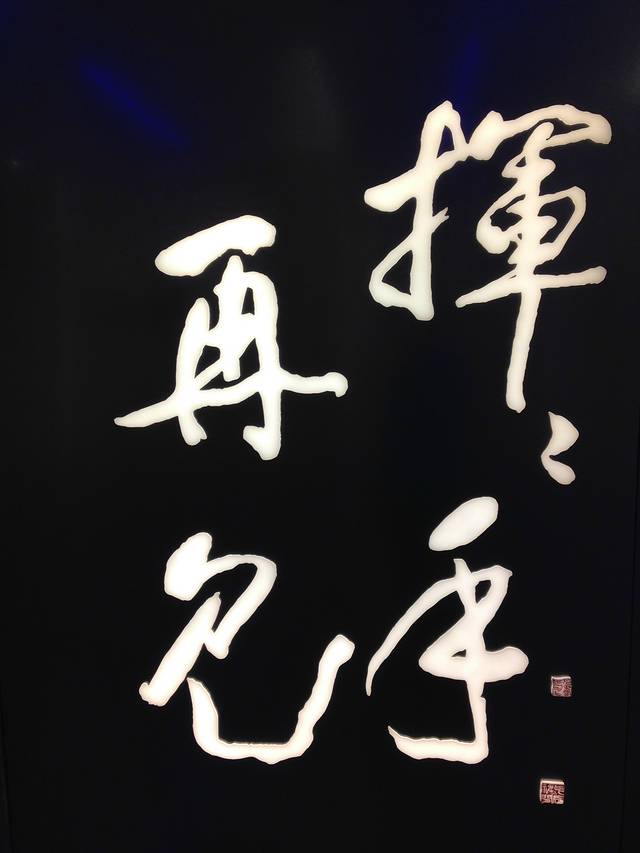 揮々手
再見